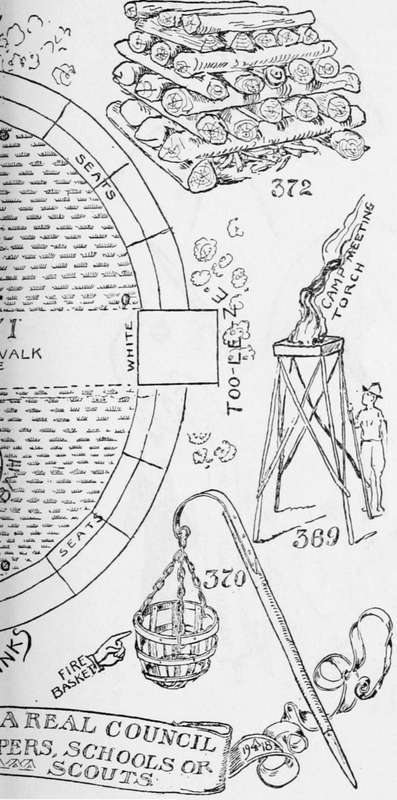 372
SEATS
CAMP MEETING
TORCH
WALK
WHITE
TOO-LET-ZE
369
SEATS
370
FIRE
BASKET
A REAL COUNCIL
PERS, SCHOOLS OR
SCOUTS